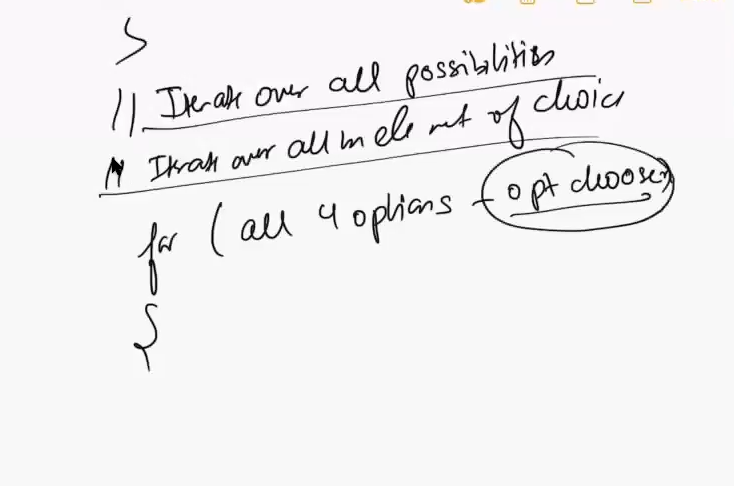 }
// Iterate over all possibilities
Iterate over all ele of choice
for ( all 4 options - opt choosen
{